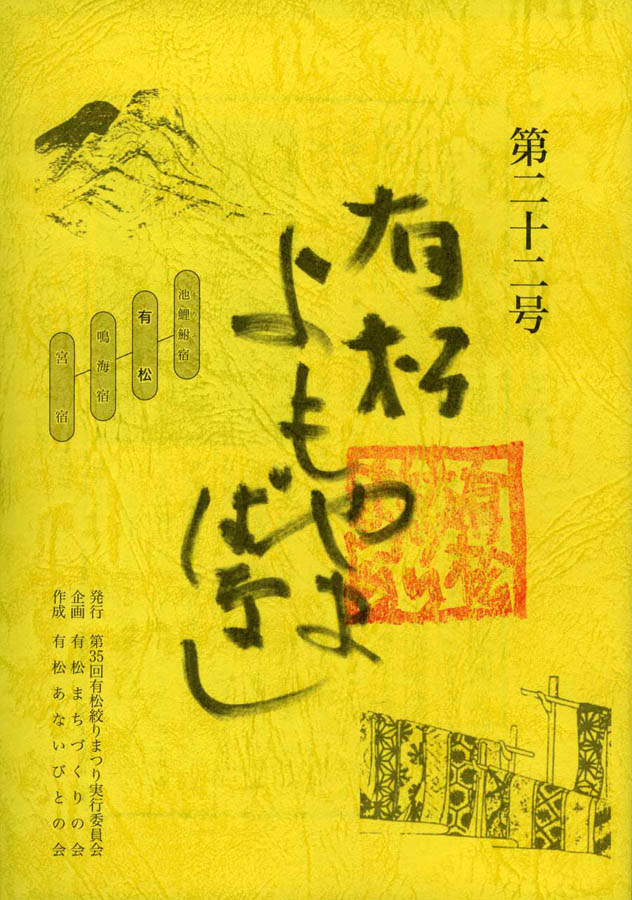 第二十二号
有松
よもやま
ばなし
池鯉鮒宿
有松
鳴海宿
宮宿
発行 第35回有松絞りまつり実行委員会
企画 有松まちづくりの会
作成 有松あないびとの会